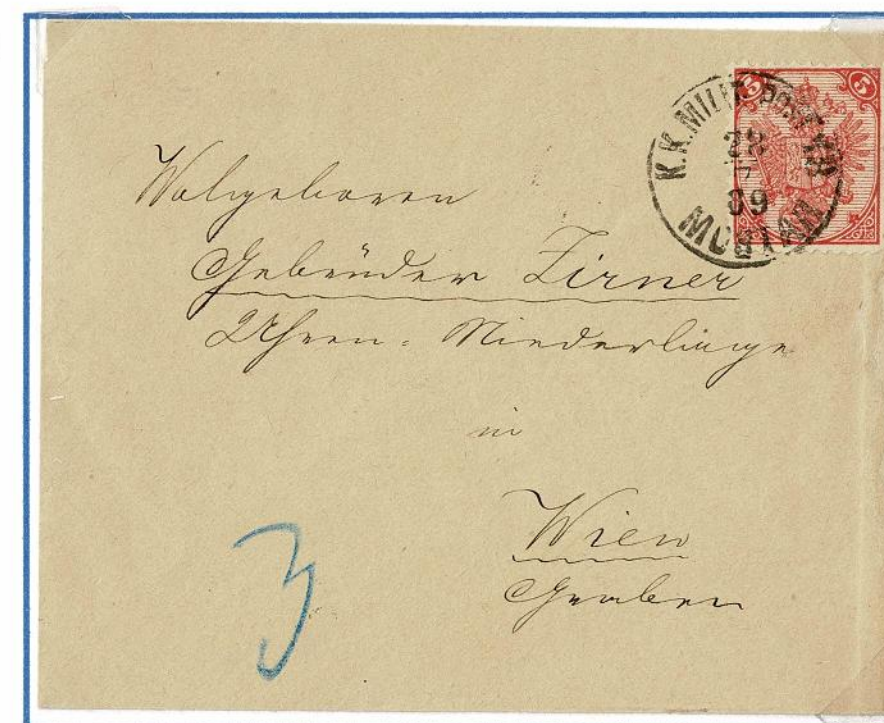 5 5
K.K.MILIT. POST XII
28
7
89
MOSTAR
Wolgeboren
Gebrüder Zirner
Uhren-Niederlage
in
Wien
Graben
3